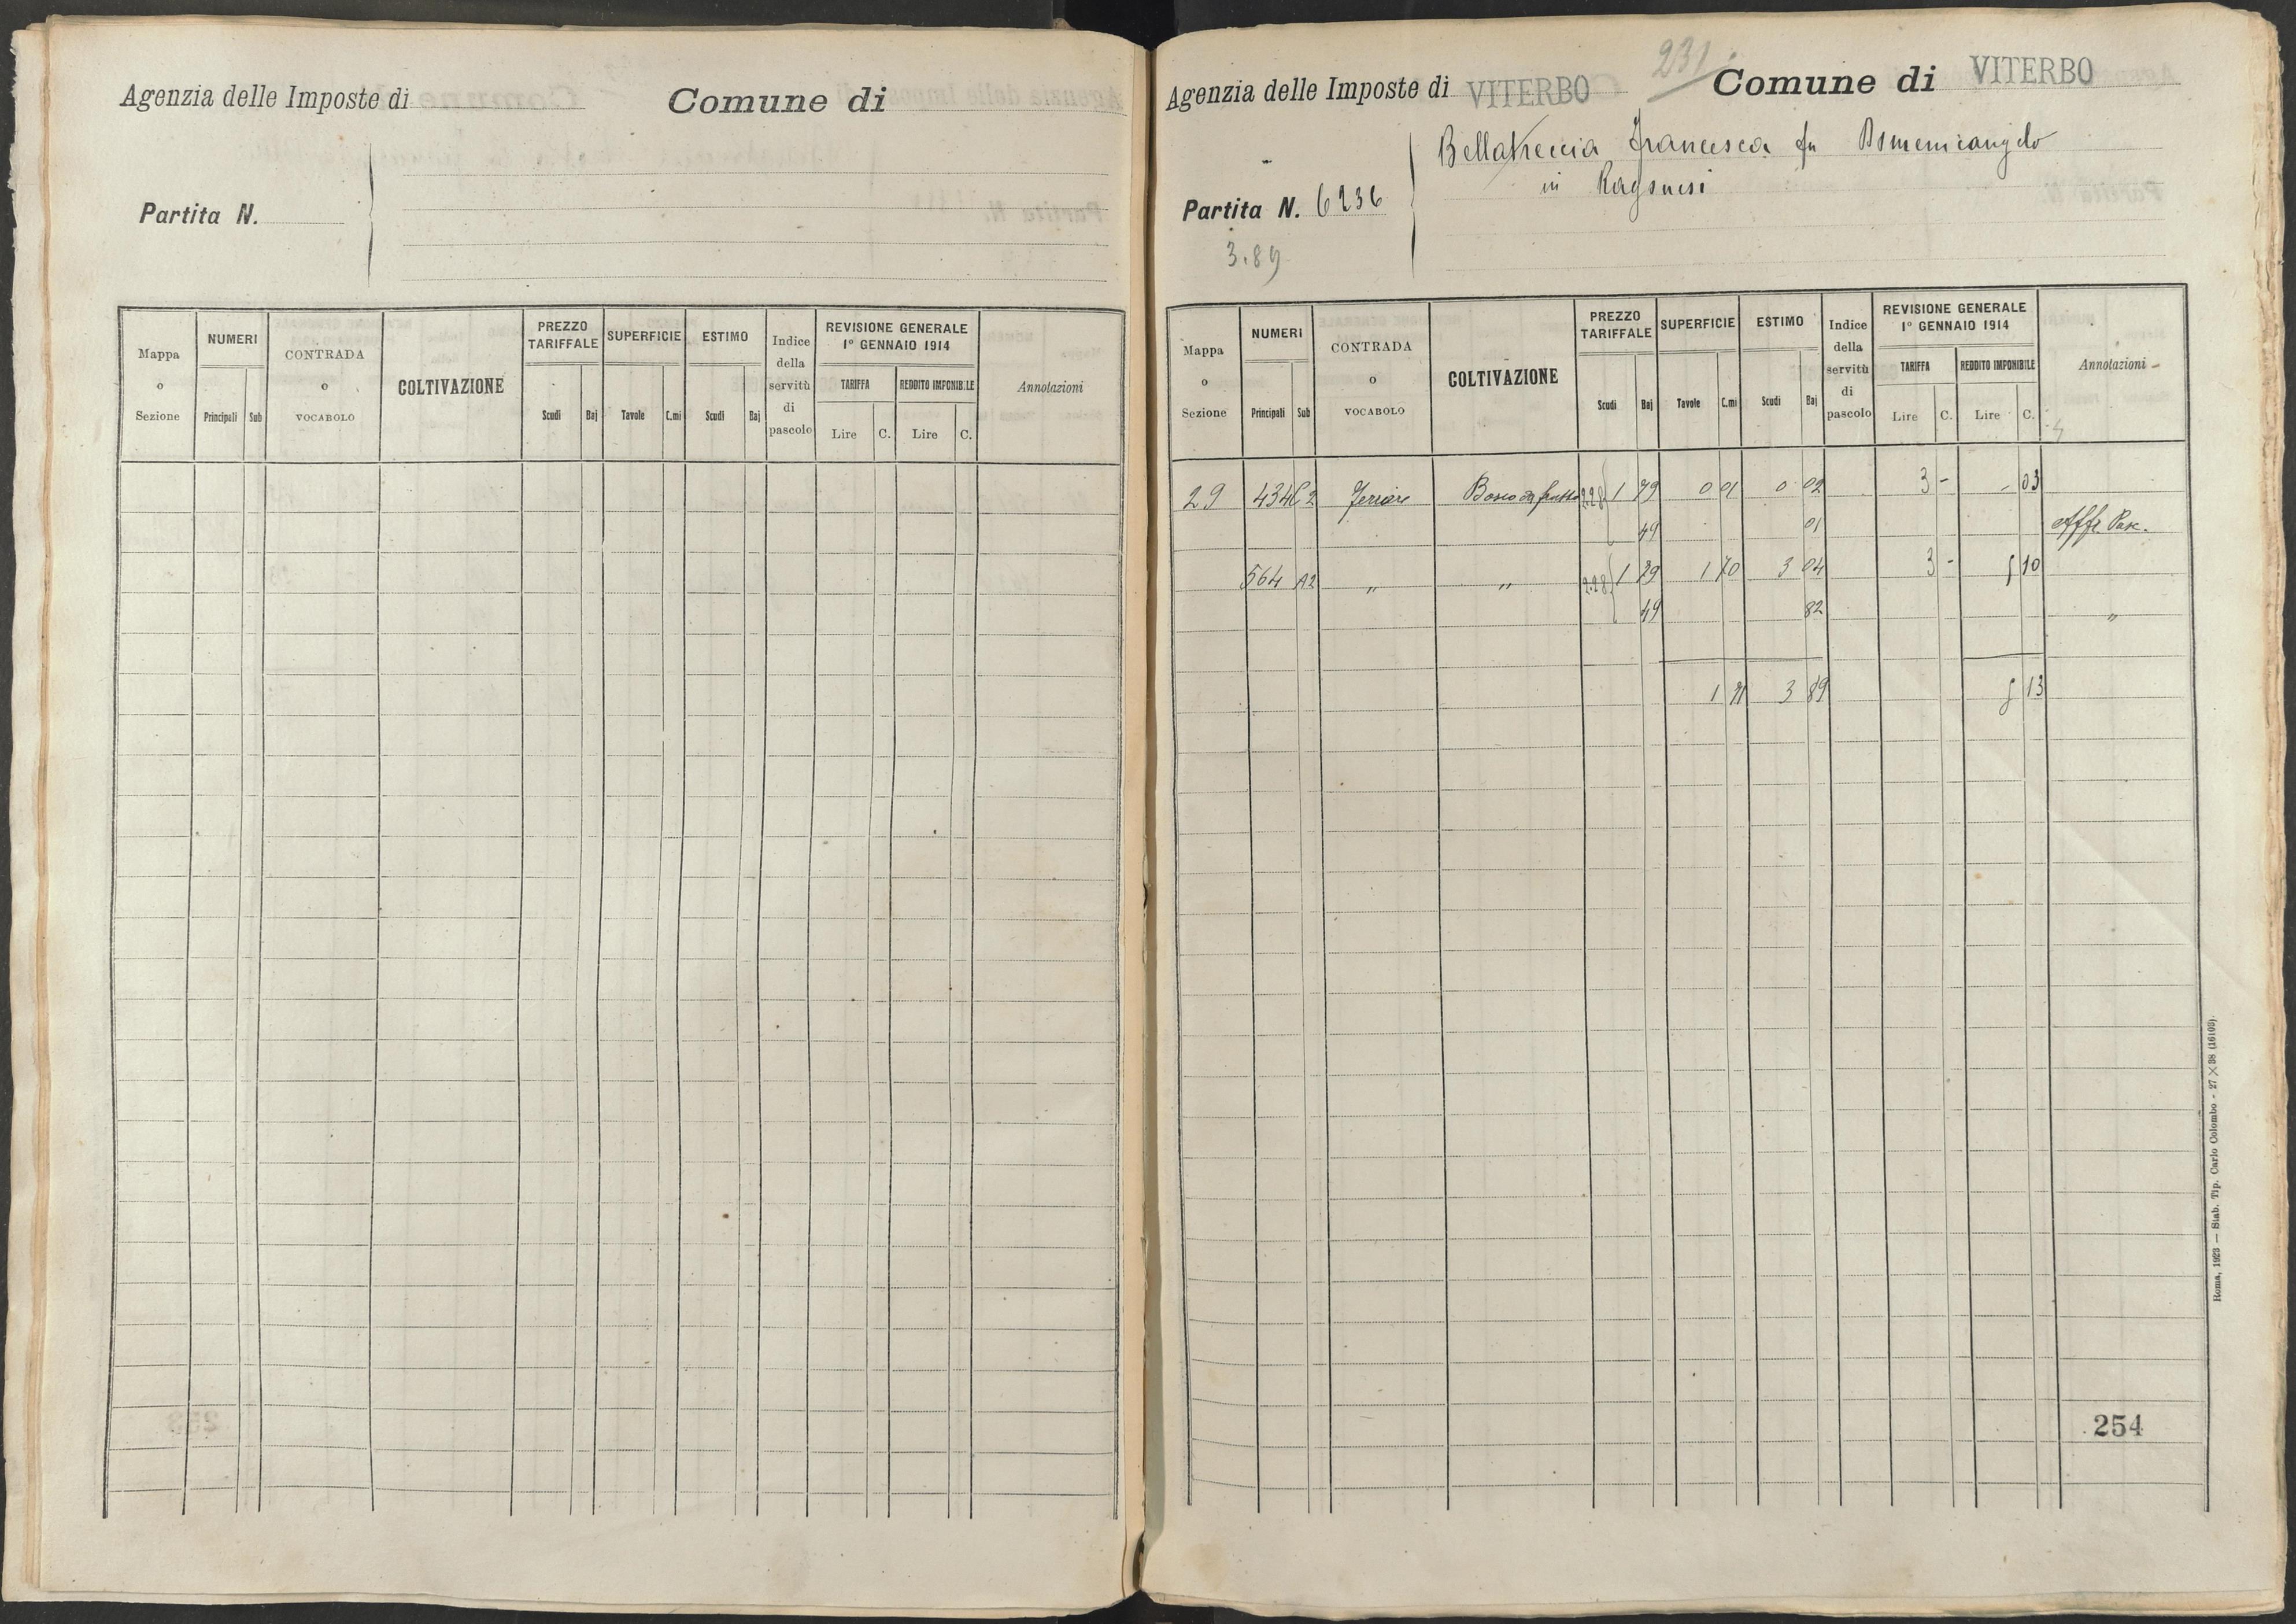 Agenzia delle Imposte di
Comune di
Partita N.
Mappa o Sezione
NUMERI
Principali Sub
CONTRADA o VOCABOLO
COLTIVAZIONE
PREZZO TARIFFALE
Scudi Baj
SUPERFICIE
Tavole C.mi
ESTIMO
Scudi Baj
Indice della servitù di pascolo
REVISIONE GENERALE
1° GENNAIO 1914
TARIFFA REDDITO IMPONIBILE
Lire C. Lire C.
Annotazioni
231
Agenzia delle Imposte di VITERBO Comune di VITERBO
Bellatreccia Francesca fu Domenicangelo
in Ragonesi
Partita N. 6236
3.89
Mappa o Sezione
NUMERI
Principali Sub
CONTRADA o VOCABOLO
COLTIVAZIONE
PREZZO TARIFFALE
Scudi Baj
SUPERFICIE
Tavole C.mi
ESTIMO
Scudi Baj
Indice della servitù di pascolo
REVISIONE GENERALE
1° GENNAIO 1914
TARIFFA REDDITO IMPONIBILE
Lire C. Lire C.
Annotazioni
29 434 C2 Bosco da frutto 2.28 1 79 0 01 0 02 3 - - 03
49 01 Affr. Pasc.
564 A2 " " 2.28 1 79 1 70 3 04 3 - 5 10
49 82 "
1 71 3 89 5 13
Roma, 1923 — Stab. Tip. Carlo Colombo - 27 × 38 (16108).
254